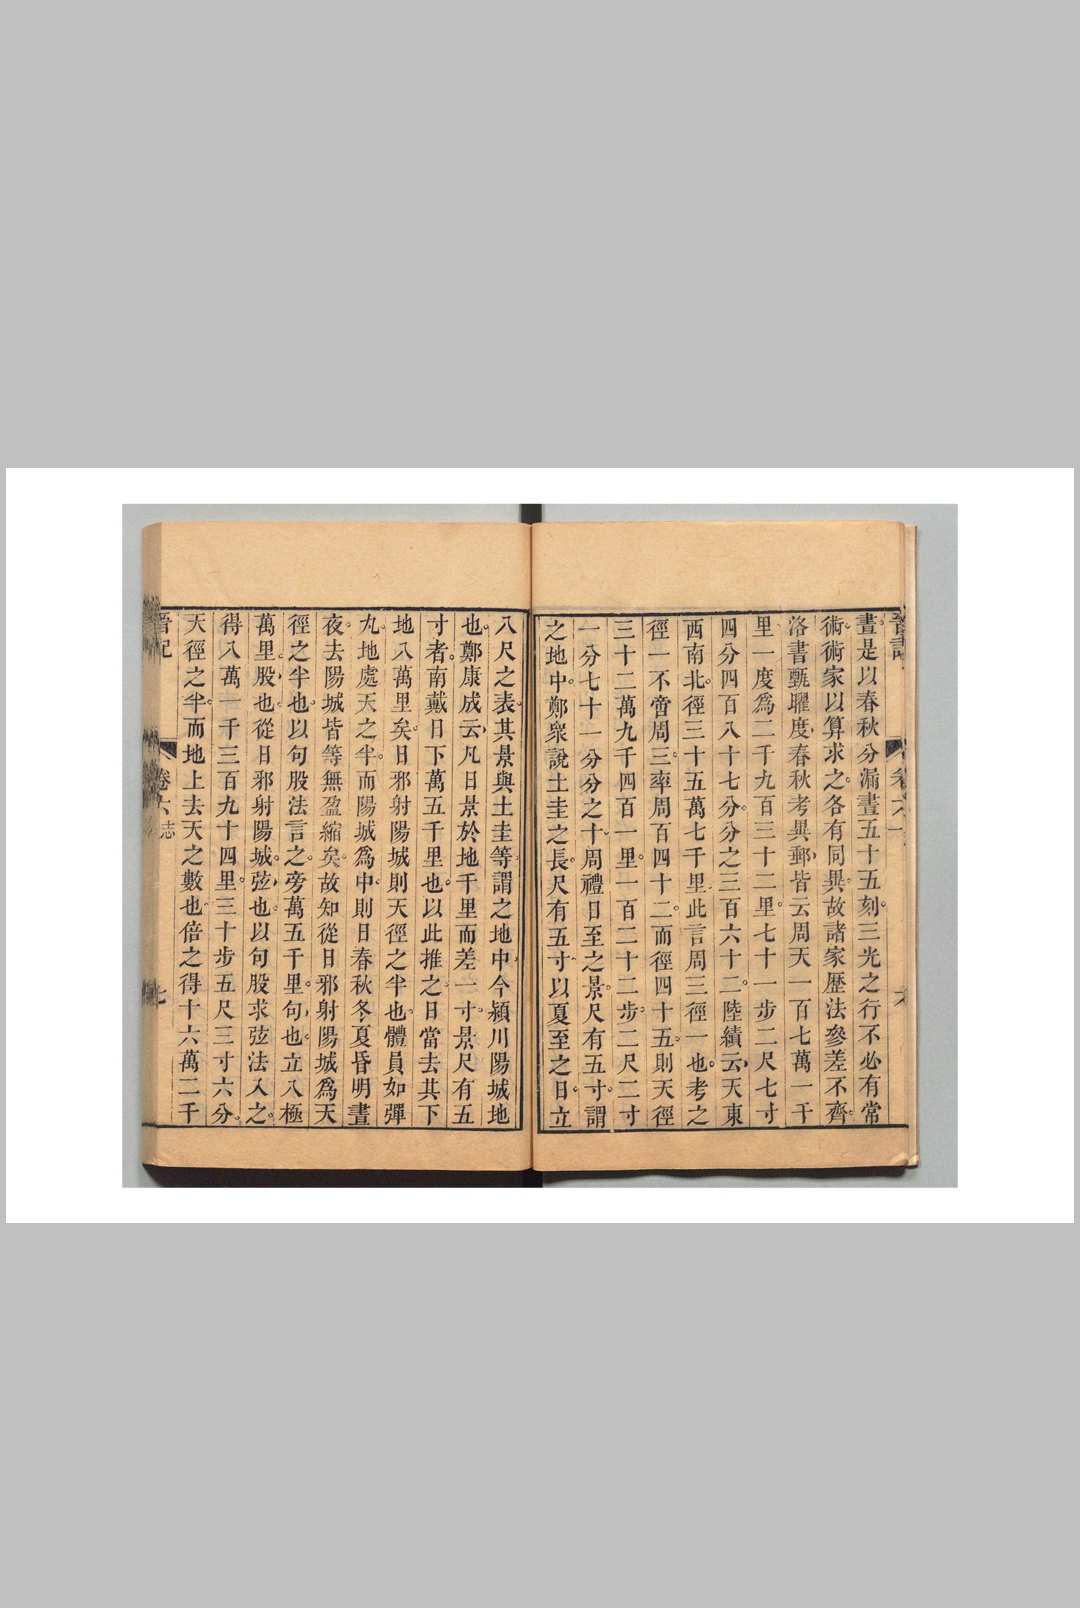 晝是以春秋分漏晝五十五刻三光之行不必有常
術術家以算求之各有同異故諸家歷法參差不齊
洛書甄曜度春秋考異郵皆云周天一百七萬一千
里一度爲二千九百三十二里七十一步二尺七寸
四分四百八十七分分之三百六十二陸績云天東
西南北徑三十五萬七千里此言周三徑一也考之
徑一不啻周三率周百四十二而徑四十五則天徑
三十二萬九千四百一里一百二十二步二尺二寸
一分七十一分分之十周禮日至之景尺有五寸謂
之地中鄭衆說土圭之長尺有五寸以夏至之日立
八尺之表其景與土圭等謂之地中今潁川陽城地
也鄭康成云凡日景於地千里而差一寸景尺有五
寸者南戴日下萬五千里也以此推之日當去其下
地八萬里矣日邪射陽城則天徑之半也體員如彈
丸地處天之半而陽城爲中則日春秋冬夏昏明晝
夜去陽城皆等無盈縮矣故知從日邪射陽城爲天
徑之半也以句股法言之旁萬五千里句也立八極
萬里股也從日邪射陽城弦也以句股求弦法入之
得八萬一千三百九十四里三十步五尺三寸六分
天徑之半而地上去天之數也倍之得十六萬二千
卷六 志
七